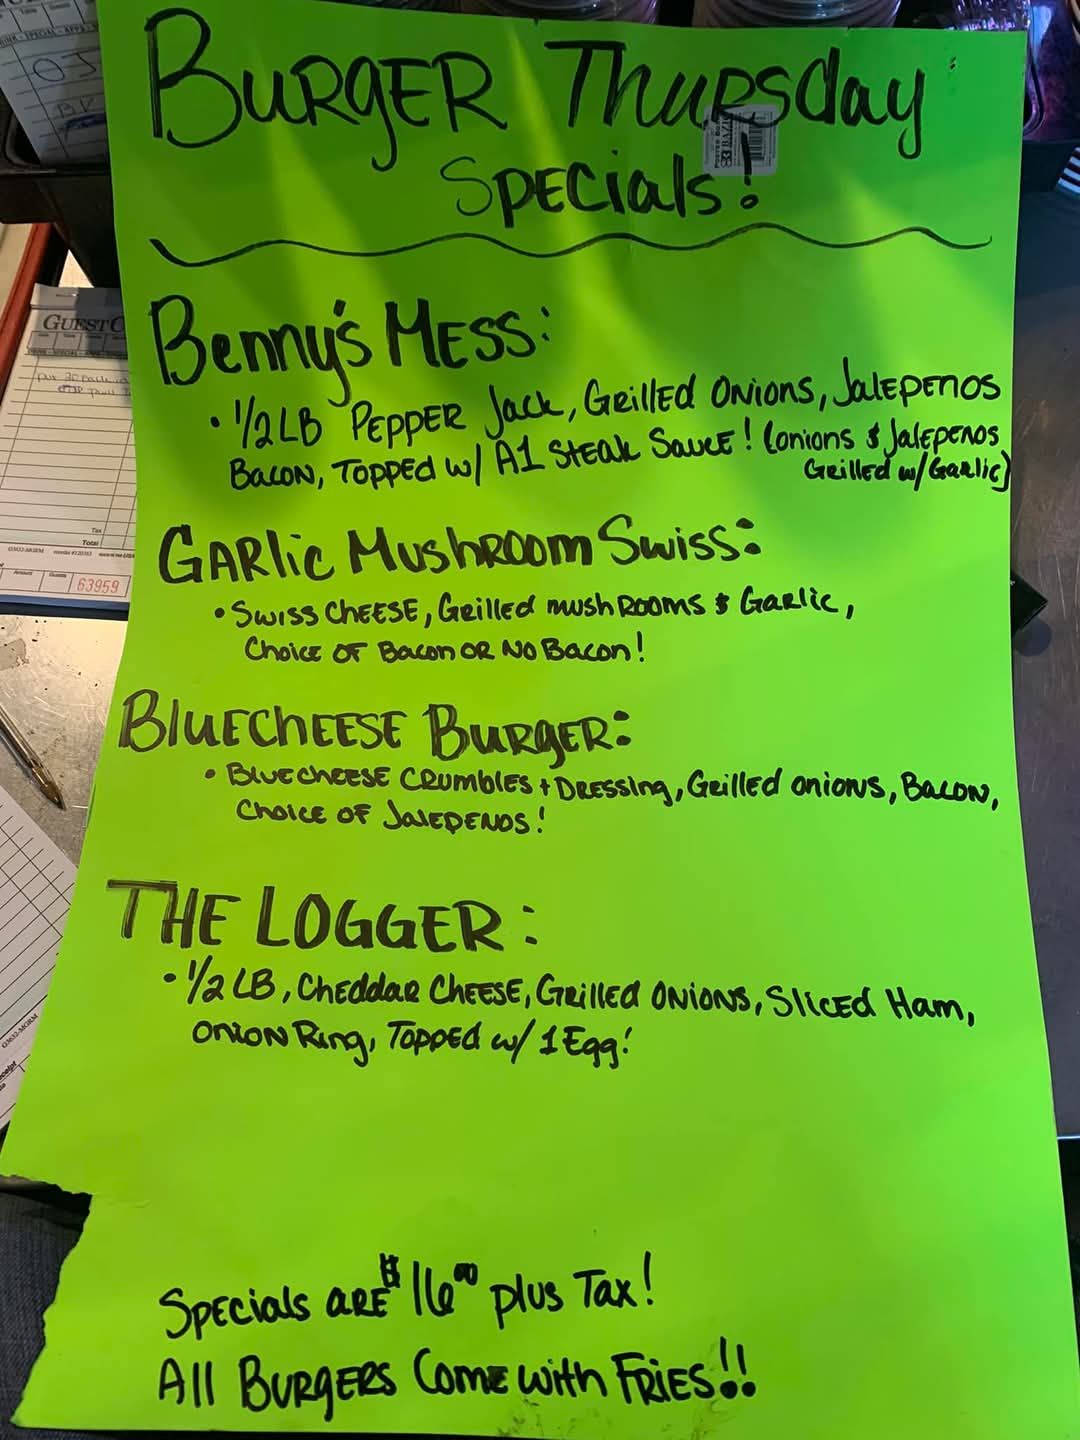 BURGER Thursday
Specials!
Benny's Mess:
• 1/2 LB Pepper Jack, Grilled Onions, Jalepenos
Bacon, Topped w/ A1 Steak Sauce! (onions & Jalepenos
Grilled w/ Garlic)
Garlic Mushroom Swiss:
• Swiss Cheese, Grilled mushrooms & Garlic,
Choice of Bacon or No Bacon!
Bluecheese Burger:
• Bluecheese Crumbles + Dressing, Grilled onions, Bacon,
Choice of Jalepenos!
THE LOGGER:
• 1/2 LB, Cheddar Cheese, Grilled Onions, Sliced Ham,
Onion Ring, Topped w/ 1 Egg!
Specials are $16.00 plus Tax!
All Burgers Come with Fries!!
GUEST C
Tax
Total
63959